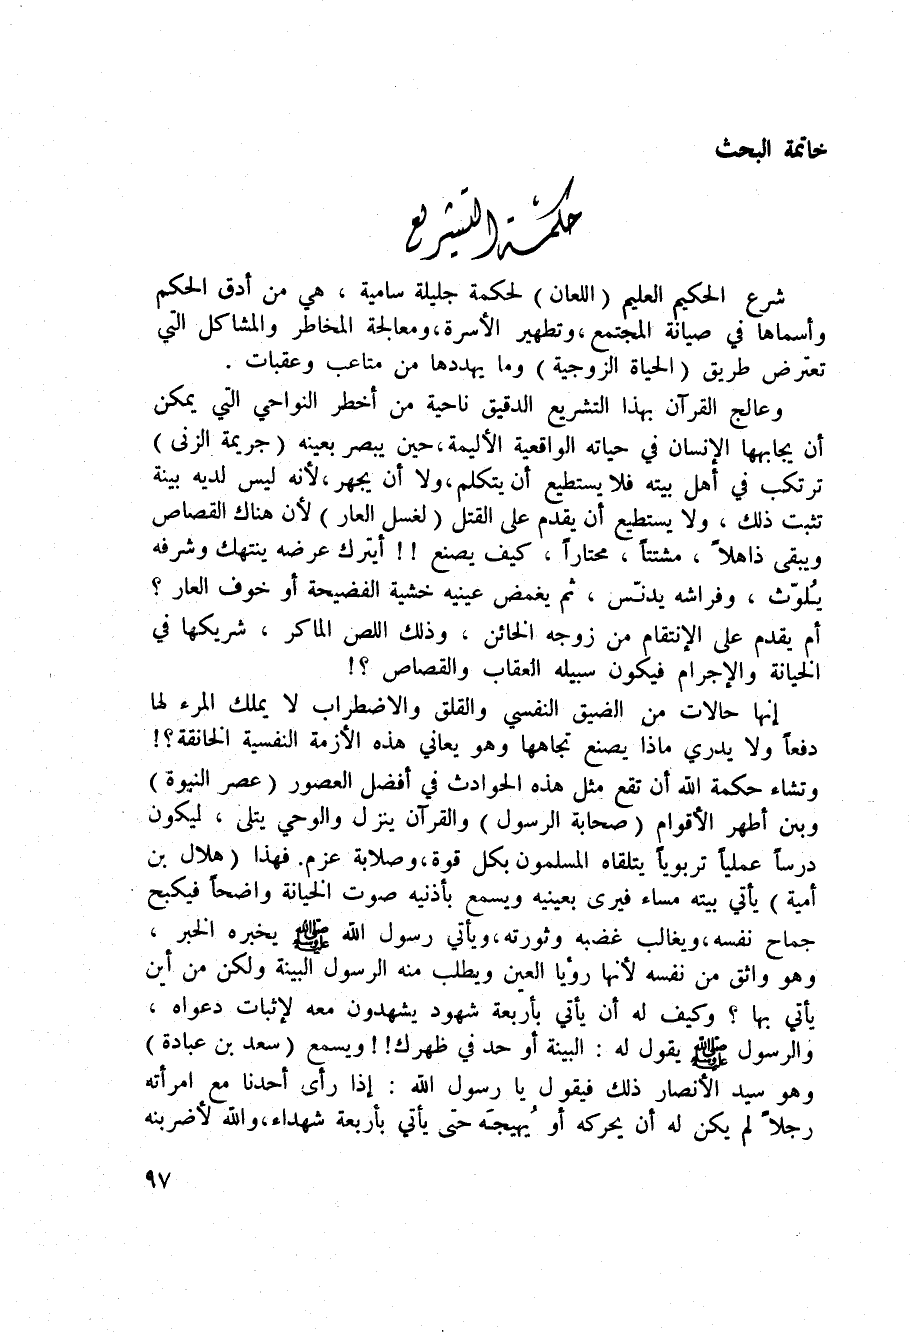 خاتمة البحث
حكمة التشريع
شرع الحكيم العليم ( اللعان ) لحكمة جليلة سامية ، هي من أدق الحكم
وأسماها في صيانة المجتمع ،وتطهير الأسرة،ومعالجة المخاطر والمشاكل التي
تعترض طريق ( الحياة الزوجية ) وما يهددها من متاعب وعقبات .
وعالج القرآن بهذا التشريع الدقيق ناحية من أخطر النواحي التي يمكن
أن يجابهها الإنسان في حياته الواقعية الأليمة،حين يبصر بعينه ( جريمة الزنى )
ترتكب في أهل بيته فلا يستطيع أن يتكلم،ولا أن يجهر،لأنه ليس لديه بينة
تثبت ذلك ، ولا يستطيع أن يقدم على القتل ( لغسل العار ) لأن هناك القصاص
ويبقى ذاهلاً ، مشتتاً ، محتاراً ، كيف يصنع !! أيترك عرضه ينتهك وشرفه
يُلوّث ، وفراشه يدنّس ، ثم يغمض عينيه خشية الفضيحة أو خوف العار ؟
أم يقدم على الإنتقام من زوجه الخائن ، وذلك اللص الماكر ، شريكها في
الخيانة والإجرام فيكون سبيله العقاب والقصاص ؟!
إنها حالات من الضيق النفسي والقلق والاضطراب لا يملك المرء لها
دفعاً ولا يدري ماذا يصنع تجاهها وهو يعاني هذه الأزمة النفسية الخانقة؟!
وتشاء حكمة الله أن تقع مثل هذه الحوادث في أفضل العصور ( عصر النبوة )
وبين أطهر الأقوام ( صحابة الرسول ) والقرآن ينزل والوحي يتلى ، ليكون
درساً عملياً تربوياً يتلقاه المسلمون بكل قوة،وصلابة عزم. فهذا ( هلال بن
أمية ) يأتي بيته مساء فيرى بعينيه ويسمع بأذنيه صوت الخيانة واضحاً فيكبح
جماح نفسه،ويغالب غضبه وثورته،ويأتي رسول الله ﷺ يخبره الخبر ،
وهو واثق من نفسه لأنها رؤيا العين ويطلب منه الرسول البينة ولكن من أين
يأتي بها ؟ وكيف له أن يأتي بأربعة شهود يشهدون معه لإثبات دعواه ،
والرسول ﷺ يقول له : البينة أو حد في ظهرك!! ويسمع ( سعد بن عبادة )
وهو سيد الأنصار ذلك فيقول يا رسول الله : إذا رأى أحدنا مع امرأته
رجلاً لم يكن له أن يحركه أو يُهيجه حتى يأتي بأربعة شهداء،والله لأضربنه
٩٧